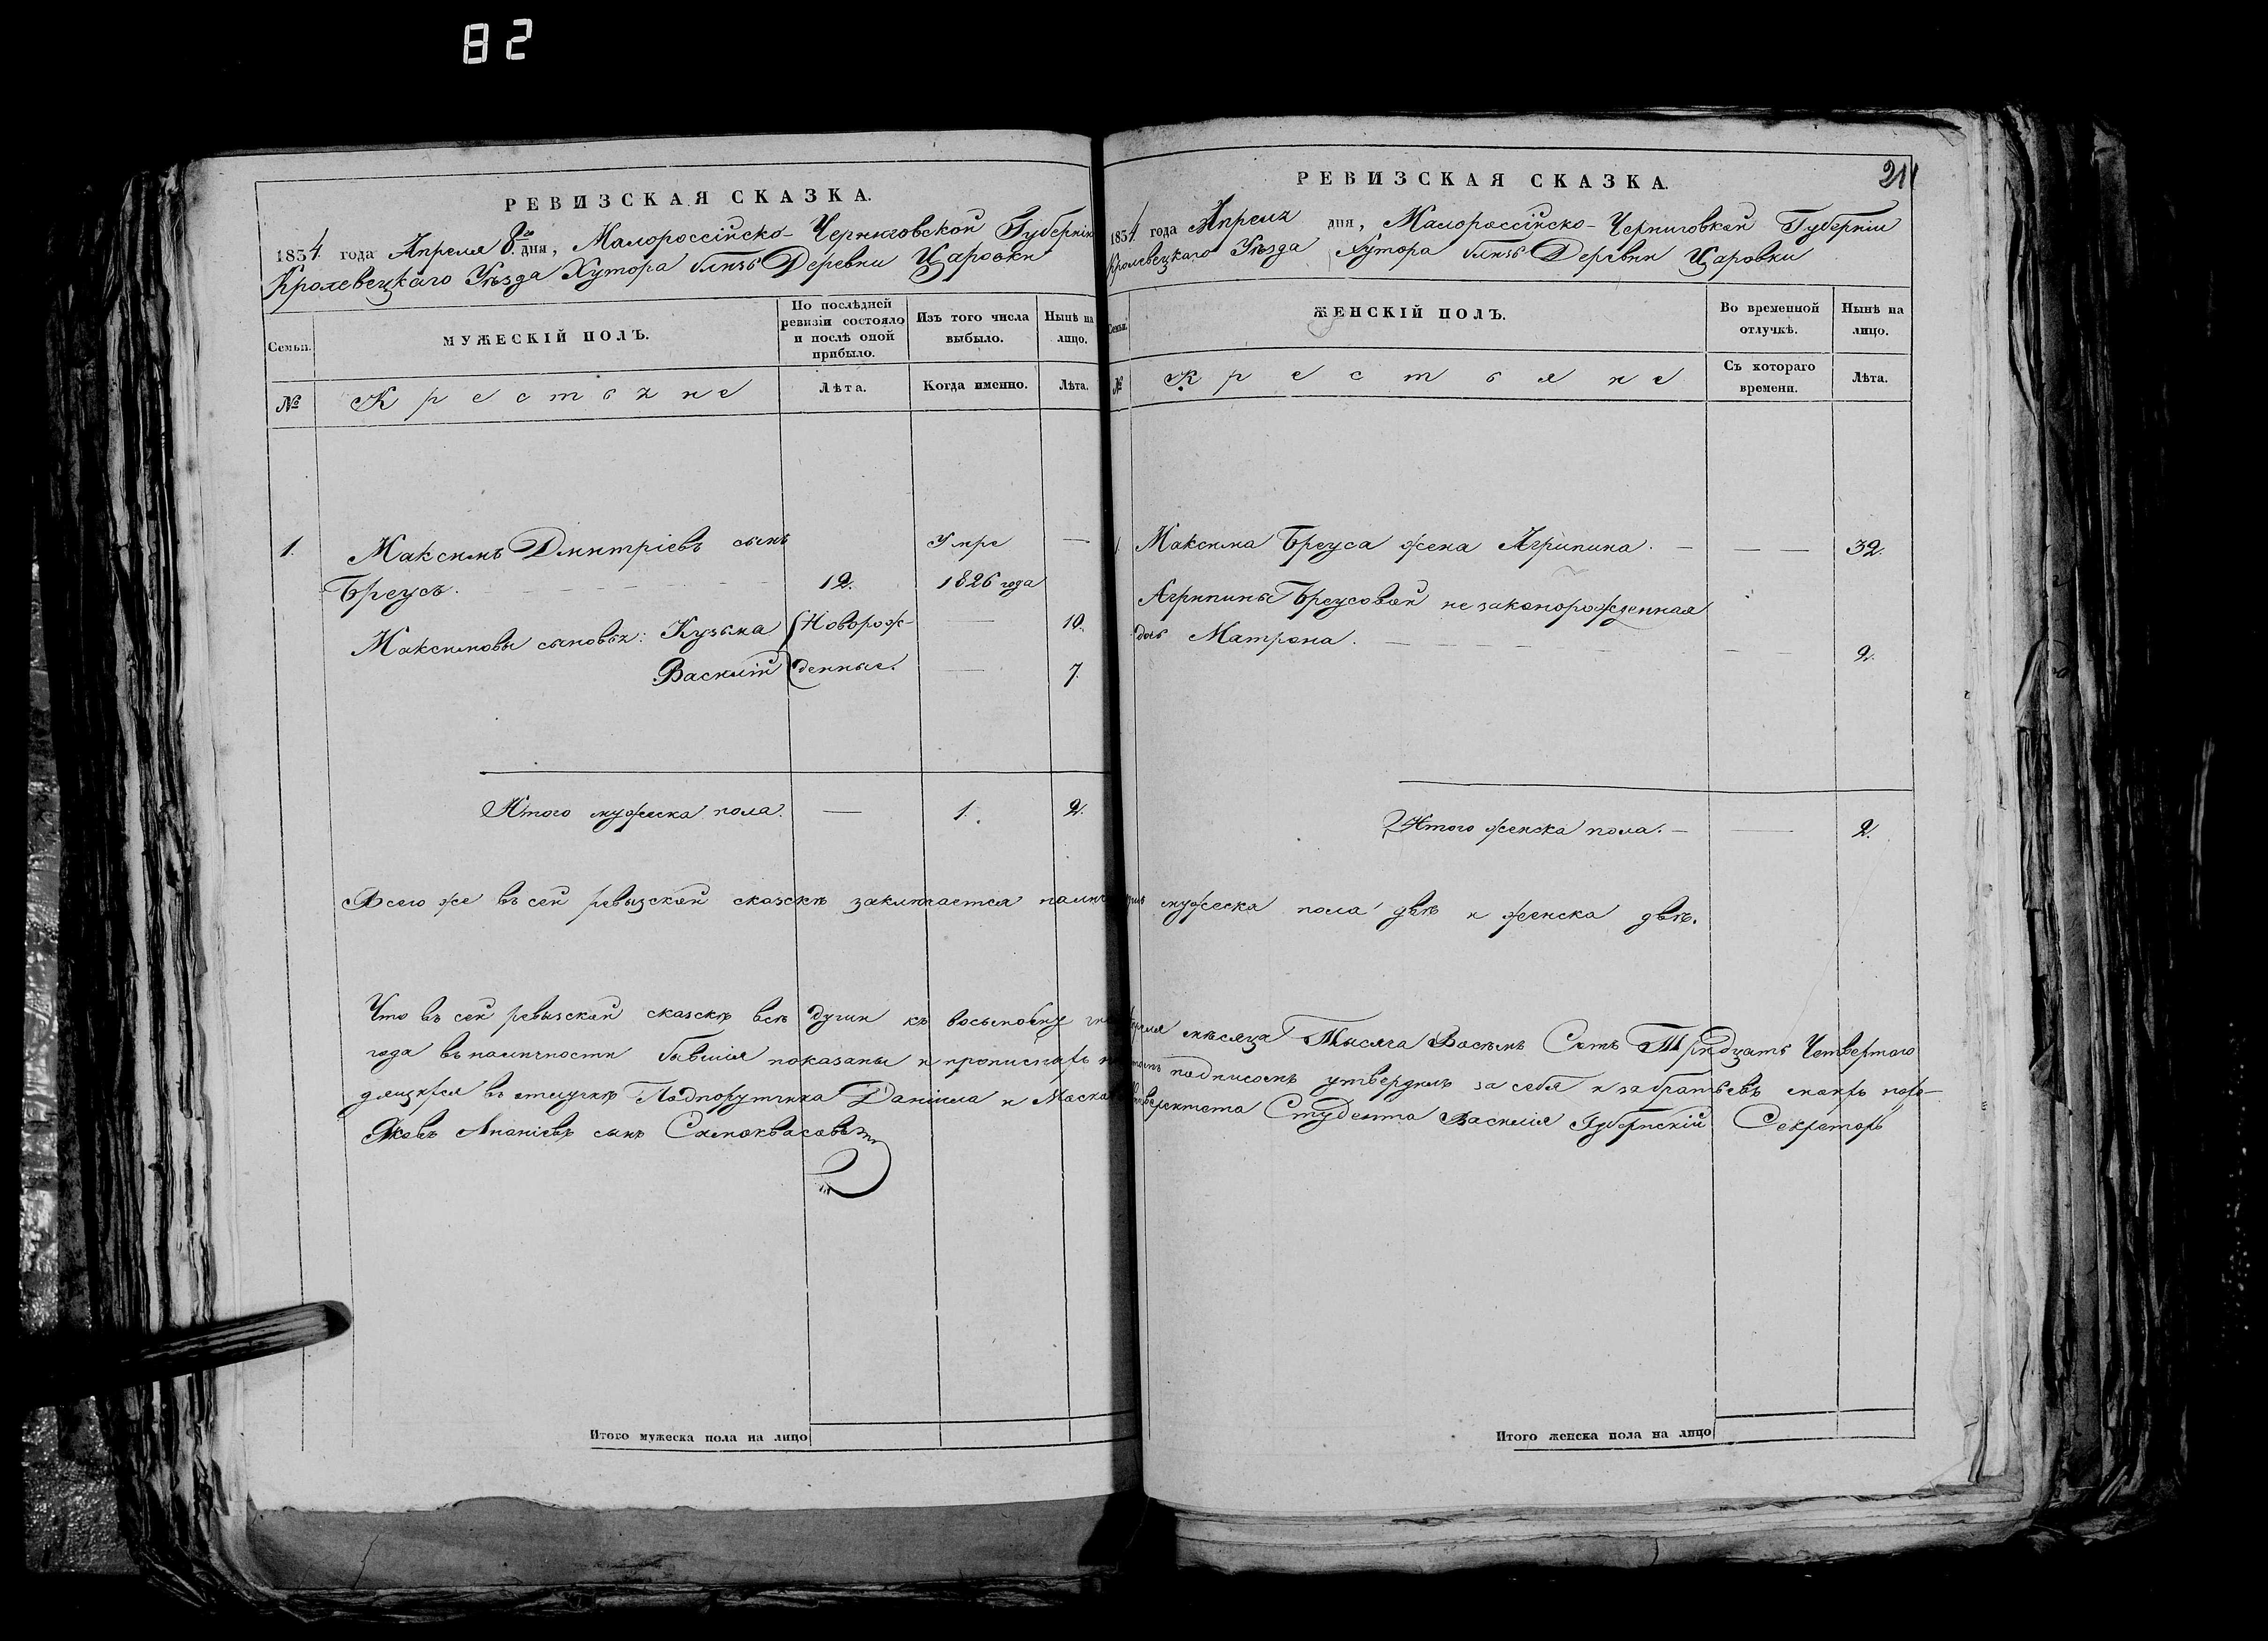 82
РЕВИЗСКАЯ СКАЗКА.
1834 года Апреля 8го дня, Малороссійско-Черниговской Губерніи
Кролевецкаго Уѣзда Хутора близь Деревни Царовки
Семьи.
МУЖЕСКІЙ ПОЛЪ.
По послѣдней ревизіи состояло и послѣ оной прибыло.
Изъ того числа выбыло.
Нынѣ на лицо.
№
Крестьяне
Лѣта.
Когда именно.
Лѣта.
1. Максимъ Дмитріевъ сынъ Умре —
Бреусъ. 12. 1826 года
Максимовы сыновья: Кузьма (Новорож- — 10.
Василій денные. — 7.
Итого мужеска пола. — 1. 2.
211
РЕВИЗСКАЯ СКАЗКА.
1834 года Апреля дня, Малороссійско-Черниговской Губерніи
Кролевецкаго Уѣзда Хутора близь Деревни Царовки
Семьи.
ЖЕНСКІЙ ПОЛЪ.
Во временной отлучкѣ.
Нынѣ на лицо.
№
Крестьяне
Съ котораго времени.
Лѣта.
1. Максима Бреуса жена Агрипина. — — — 32.
Агрипины Бреусовой незаконорожденная
дочь Матрона. — — 2.
Итого женска пола. — — 2.
Всего же въ сей ревизской сказкѣ заключается мужеска пола двѣ и женска двѣ.
Что въ сей ревизской сказкѣ всѣ души къ восьмому Апреля мѣсяца Тысяча Восемь Сотъ Тридцать Четвертого
года въ наличности бывшія показаны и прописныхъ подписомъ утвердилъ за себя и за братьевъ моихъ нахо-
дящихся въ отлучкѣ Подпоручика Даніила и Студента Василія Губернскій Секретарь
Яковъ Ананіевъ сынъ Самоквасовъ
Итого мужеска пола на лицо
Итого женска пола на лицо